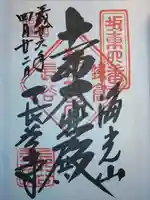 坂東四番
海光山
大悲殿
令和六年
四月廿二日
長谷寺